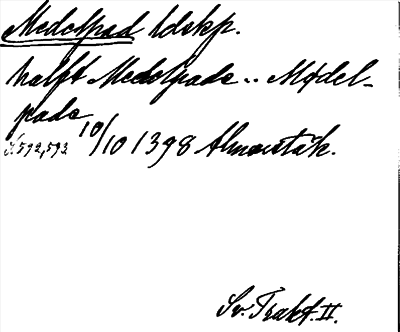 Medelpad ldskp.
halft Medelpada .. Mødel-
pada
S. 592, 593 10/10 1398 Almarstäk.
Sv. Trakt. II.